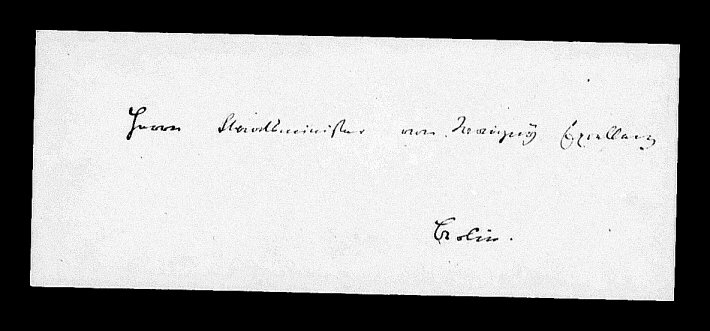 Herrn Staatsminister von Savigny Excellenz
Berlin.